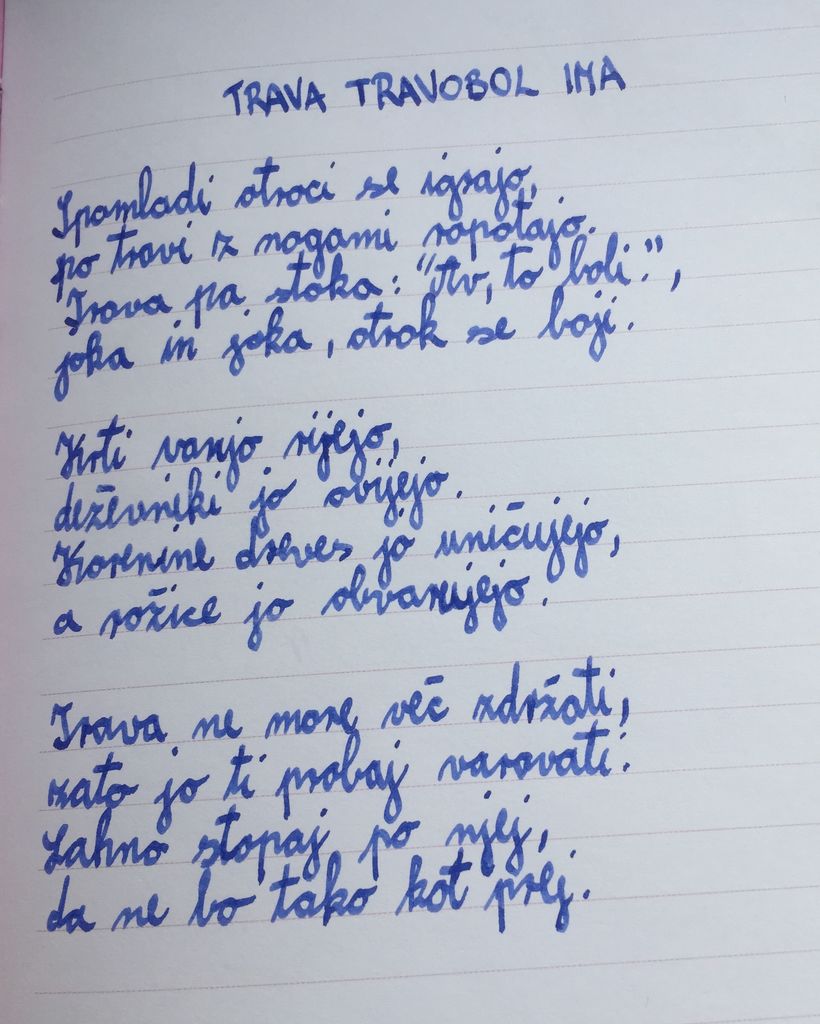 TRAVA TRAVOBOL IMA
Spomladi otroci se igrajo,
po travi z nogami ropotajo.
Trava pa stoka: "Av, to boli.",
joka in joka, otrok se boji.
Krti vanjo rijejo,
deževniki jo ovijejo.
Korenine dreves jo uničujejo,
a rožice jo obvarujejo.
Trava ne more več zdržati,
zato jo ti probaj varovati.
Lahno stopaj po njej,
da ne bo tako kot prej.